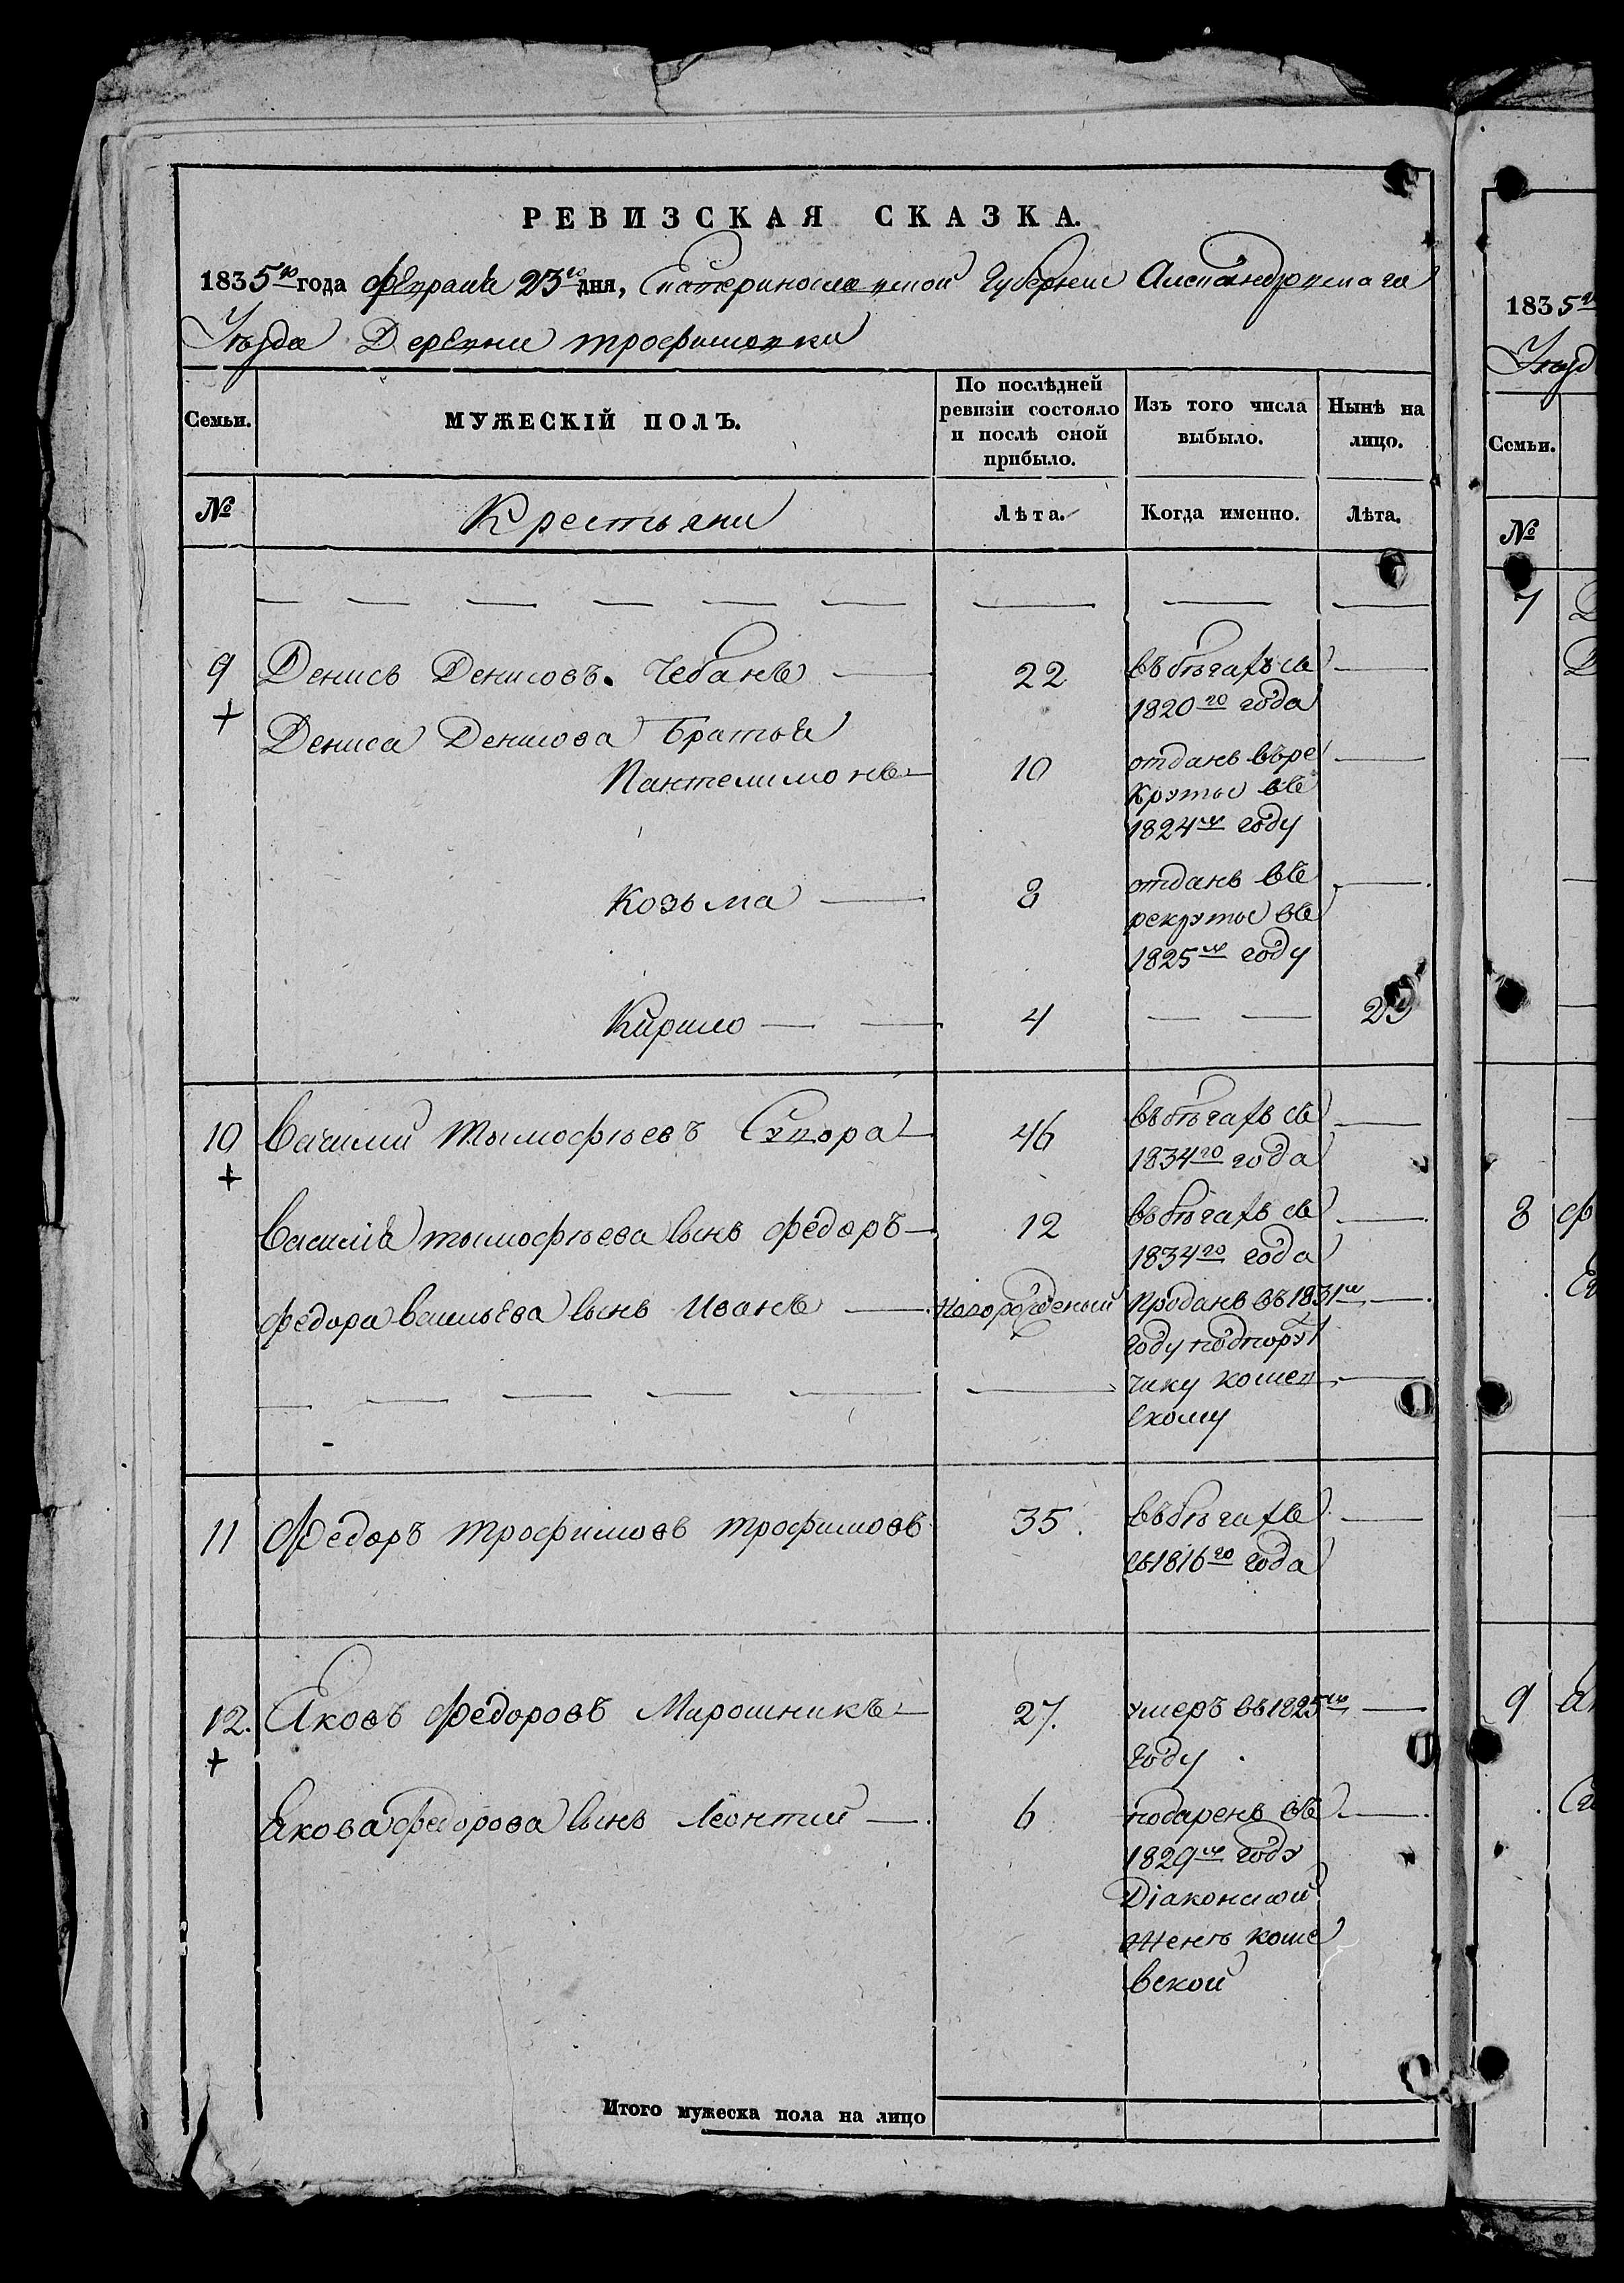 РЕВИЗСКАЯ СКАЗКА.
1835го года февраля 23го дня, Екатеринославской Губернии Александровскаго
Уезда Деревни трофимовки
Семьи. МУЖЕСКІЙ ПОЛЪ. По послѣдней ревизіи состояло и послѣ оной прибыло. Изъ того числа выбыло. Нынѣ на лицо.
№ Крестьяни Лѣта. Когда именно. Лѣта.
9 Денисъ Денисовъ Чебанъ 22 въ бѣгахъ съ
1820го года
Дениса Денисова Братья
Пантелимонъ 10 отданъ въ ре
круты въ
1824м году
Козьма 8 отданъ въ
рекруты въ
1825м году
Кирило 4 23
10 Василий тымофѣевъ 46 въ бѣгахъ съ
1834го года
Василія тымофѣева сынъ федоръ 12 въ бѣгахъ съ
1834го года
федора васильева сынъ Иванъ Новорожденый проданъ въ 1831м
году подпору
чику кошев
скому
11 Федоръ трофимовъ трофимовъ 35. въ бѣгахъ
съ 1816го года
12. Яковъ федоровъ Мирошникъ 27. умеръ въ 1825м
году
Якова федорова сынъ Леонтий 6 подаренъ въ
1829м году
Діаконской
женѣ коше
вской
Итого мужеска пола на лицо
1835го
Уезд
Семьи.
№
7
8 ф
9